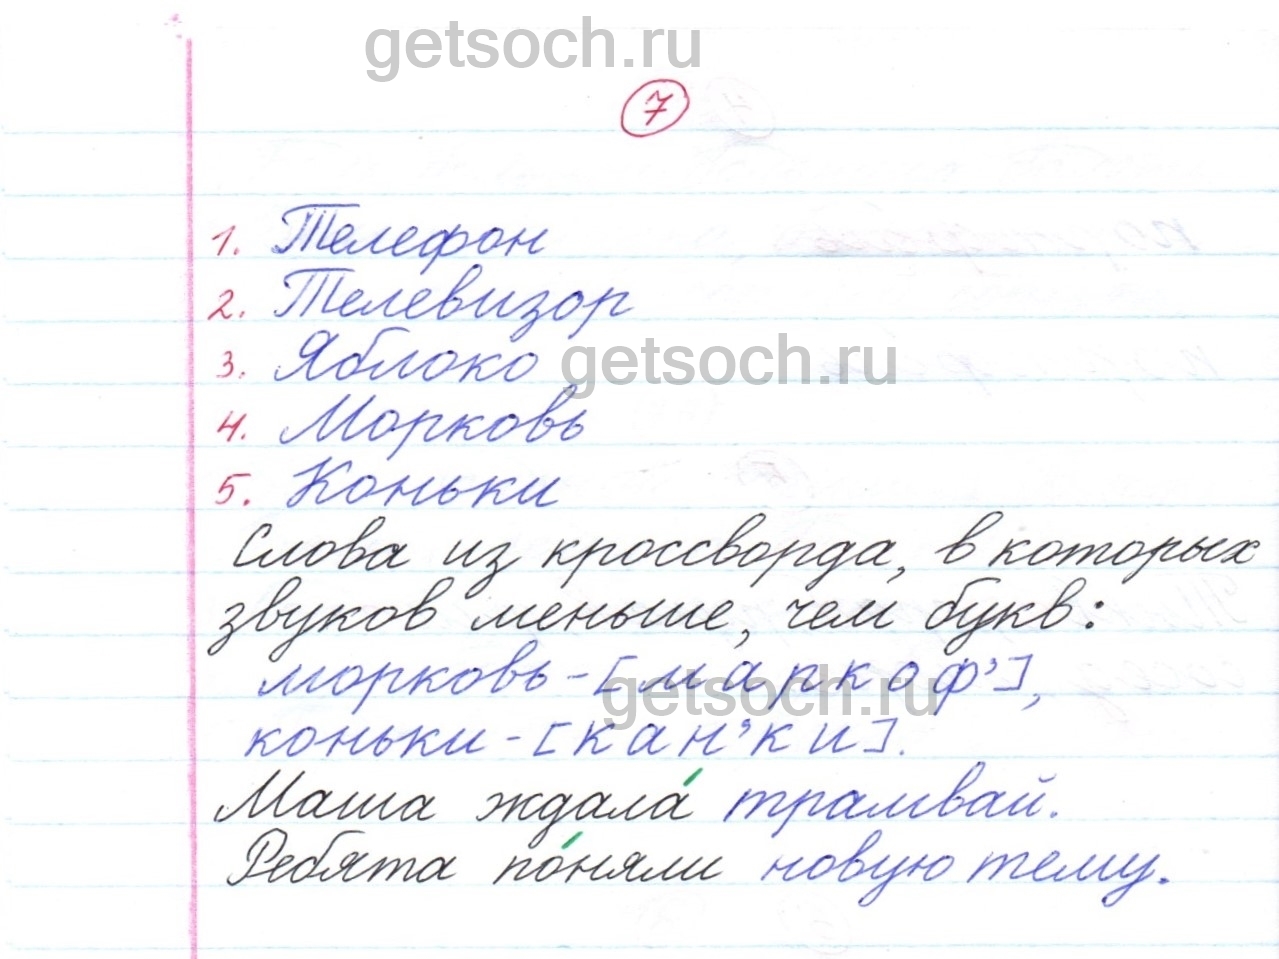 getsoch.ru
7
1. Телефон
2. Телевизор
3. Яблоко
getsoch.ru
4. Морковь
5. Коньки
Слова из кроссворда, в которых
звуков меньше, чем букв:
морковь - [маркоф'],
getsoch.ru
коньки - [кан'ки].
Маша ждала́ трамвай.
Ребята по́няли новую тему.